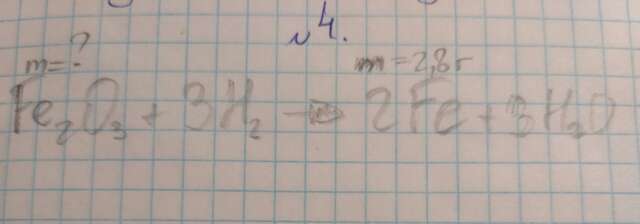 №4.
m=? m=2,8г
Fe₂O₃ + 3H₂ → 2Fe + 3H₂O